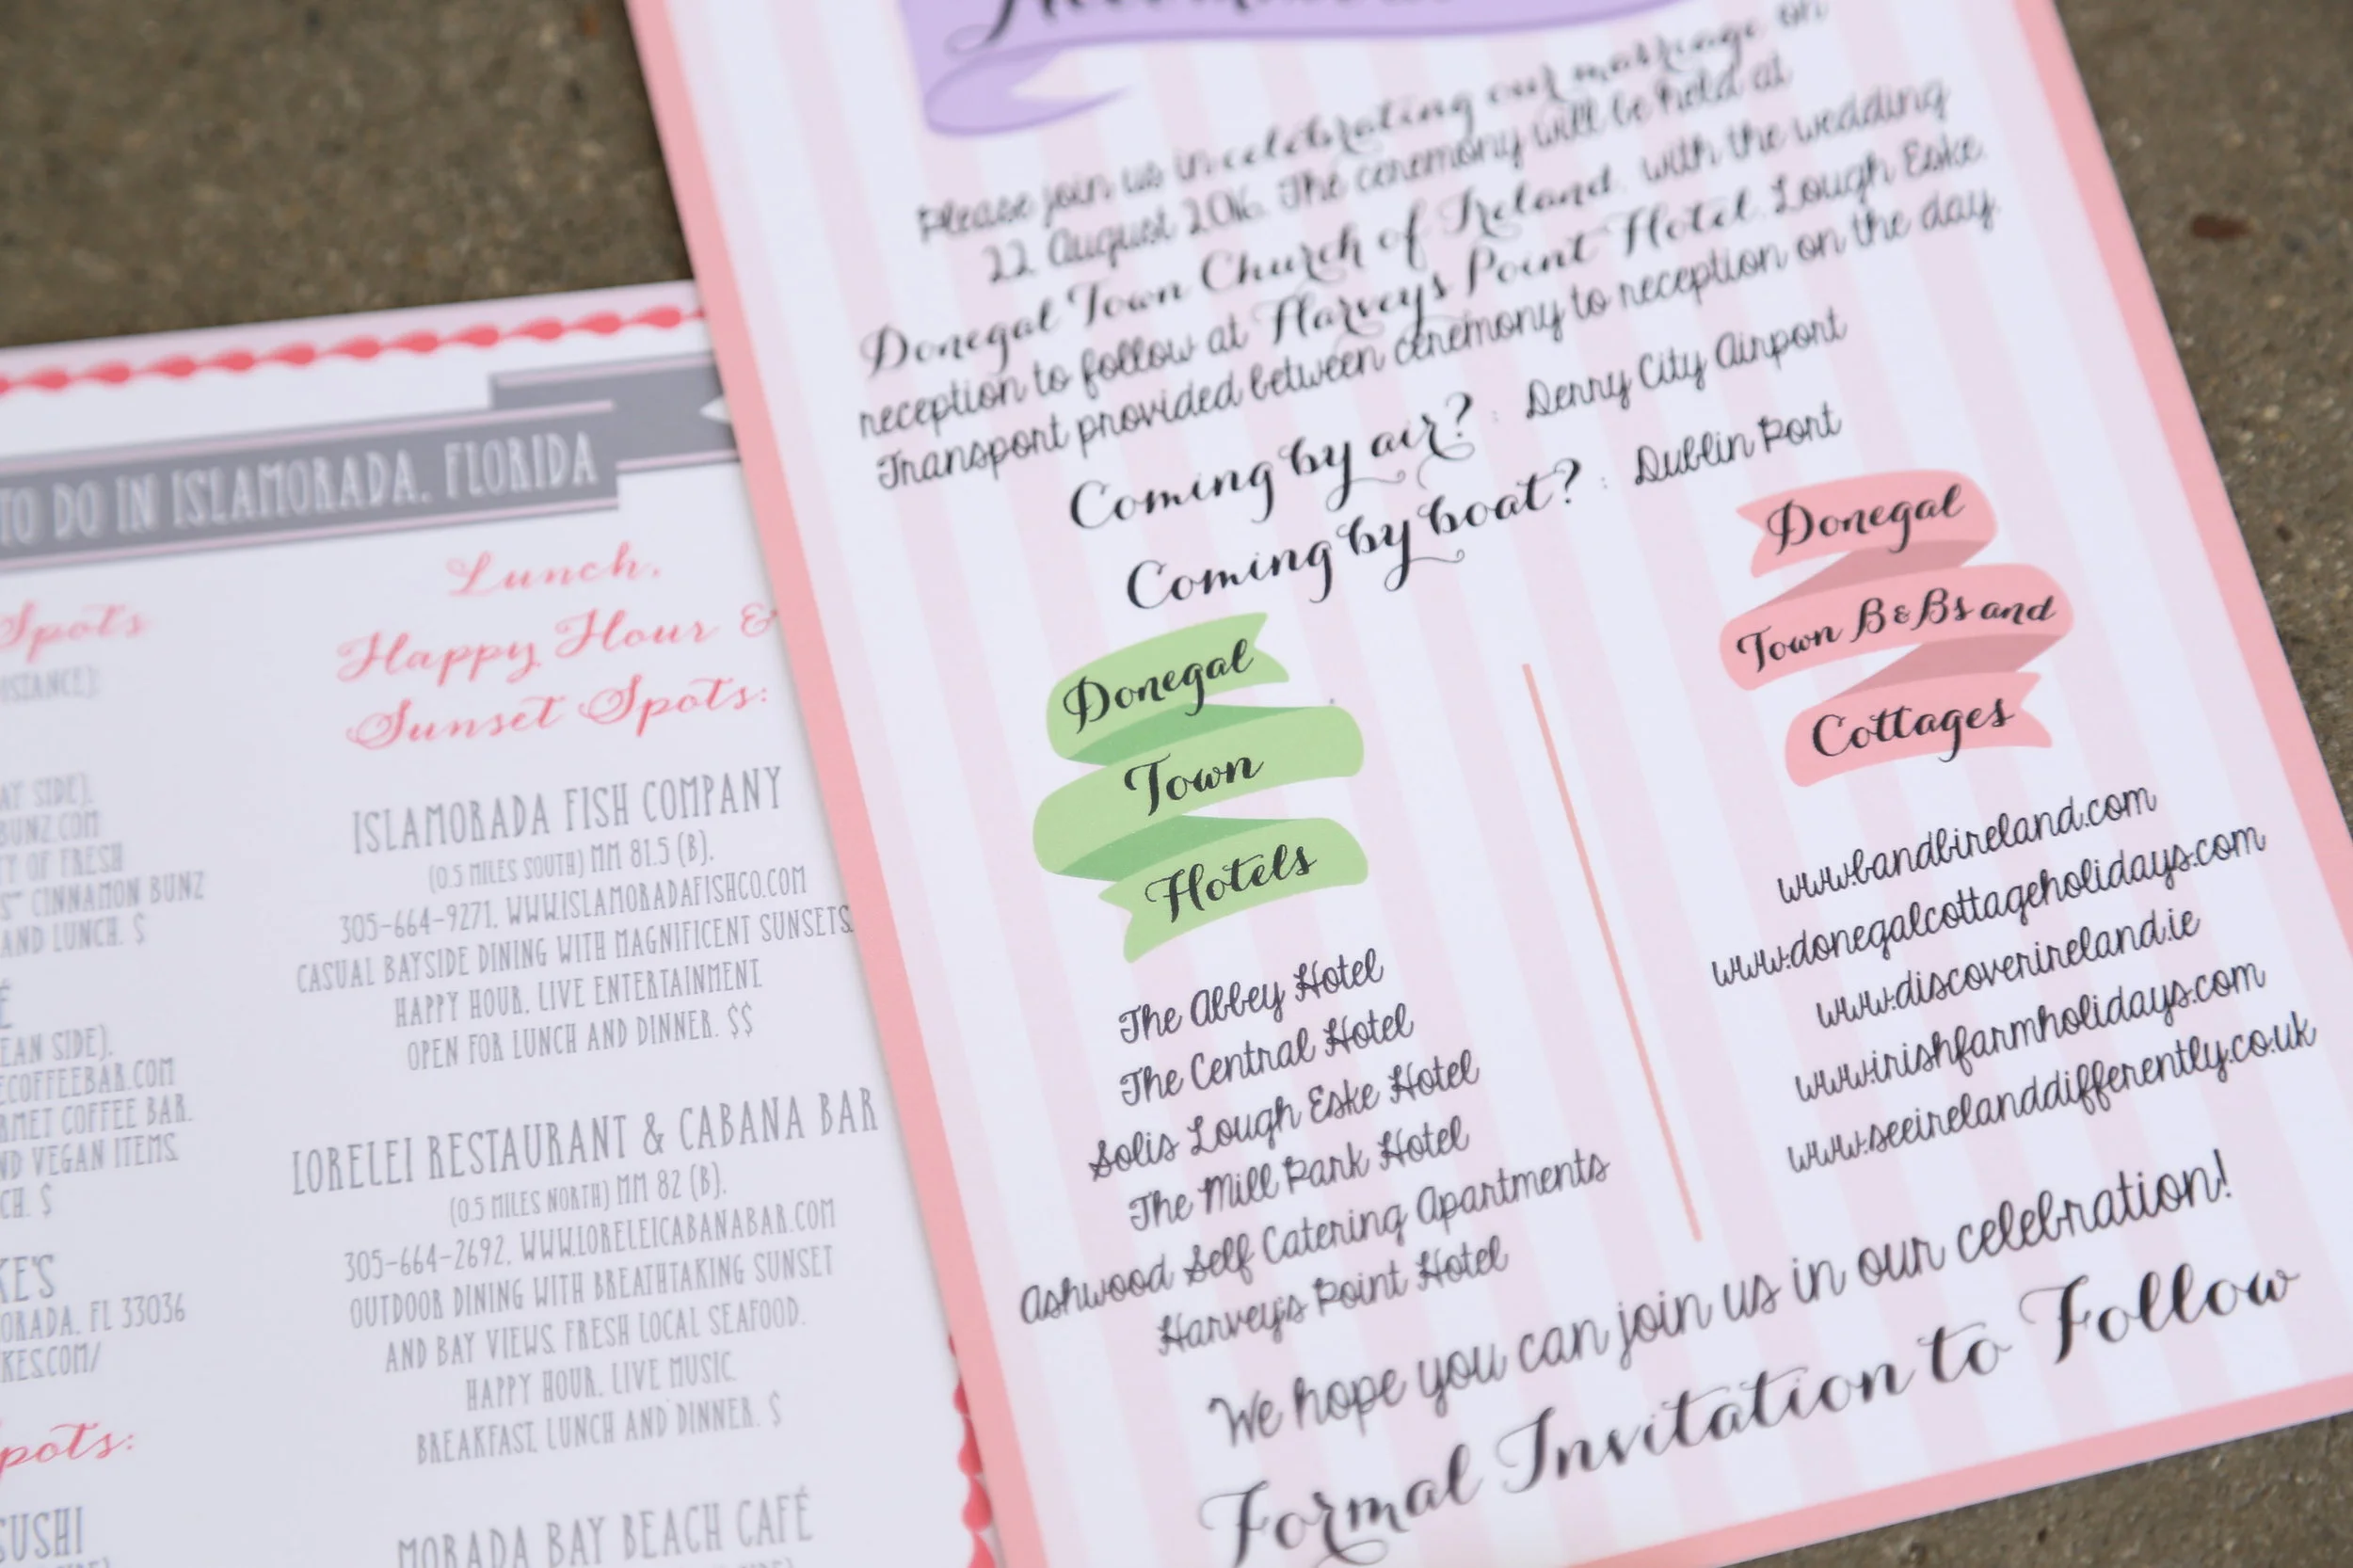 TO DO IN ISLAMORADA, FLORIDA
Spots
ISTANCE):
AY SIDE),
BUNZ.COM
TY OF FRESH
S" CINNAMON BUNZ
AND LUNCH. $
É
EAN SIDE),
ECOFFEEBAR.COM
RMET COFFEE BAR.
ND VEGAN ITEMS.
CH. $
KE'S
ORADA, FL 33036
KES.COM/
pots:
SUSHI
Lunch,
Happy Hour &
Sunset Spots:
ISLAMORADA FISH COMPANY
(0.5 MILES SOUTH) MM 81.5 (B),
305-664-9271, WWW.ISLAMORADAFISHCO.COM
CASUAL BAYSIDE DINING WITH MAGNIFICENT SUNSETS.
HAPPY HOUR. LIVE ENTERTAINMENT
OPEN FOR LUNCH AND DINNER. $$
LORELEI RESTAURANT & CABANA BAR
(0.5 MILES NORTH) MM 82 (B),
305-664-2692, WWW.LORELEICABANABAR.COM
OUTDOOR DINING WITH BREATHTAKING SUNSET
AND BAY VIEWS. FRESH LOCAL SEAFOOD.
HAPPY HOUR. LIVE MUSIC.
BREAKFAST, LUNCH AND DINNER. $
MORADA BAY BEACH CAFÉ
Please join us in celebrating our marriage on
22 August 2016. The ceremony will be held at
Donegal Town Church of Ireland, with the wedding
reception to follow at Harveys Point Hotel, Lough Eske.
Transport provided between ceremony to reception on the day.
Coming by air? : Derry City Airport
Coming by boat? : Dublin Port
Donegal
Town
Hotels
The Abbey Hotel
The Central Hotel
Solis Lough Eske Hotel
The Mill Park Hotel
Ashwood Self Catering Apartments
Harvey's Point Hotel
Donegal
Town B&Bs and
Cottages
www.bandbireland.com
www.donegalcottageholidays.com
www.discoverireland.ie
www.irishfarmholidays.com
www.seeirelanddifferently.co.uk
We hope you can join us in our celebration!
Formal Invitation to Follow